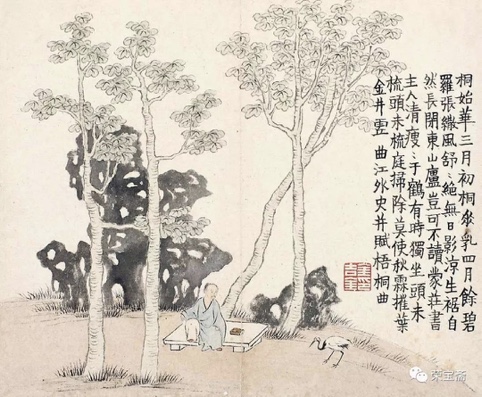 桐始華三月初桐發乳四月餘碧
羅張纖風舒〻絶無日影涼生裾自
然長閉東山廬豈可不讀蒙莊書
主人清瘦〻于鶴有時獨坐頭未
梳頭未梳庭掃除莫使秋霖摧葉
金井雲 曲江外史并賦梧桐曲
荣宝斋